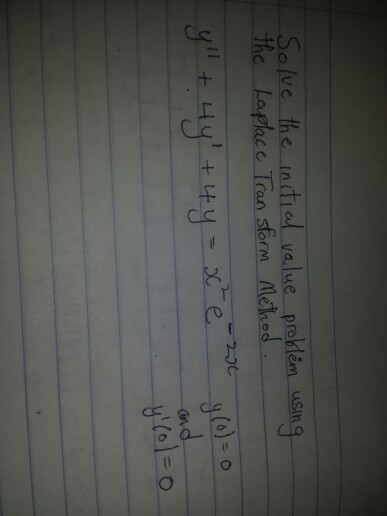 Solve the initial value problem using
the Laplace Transform Method.
y'' + 4y' + 4y = x² e⁻²ˣ y(0)=0
and
y'(0)=0